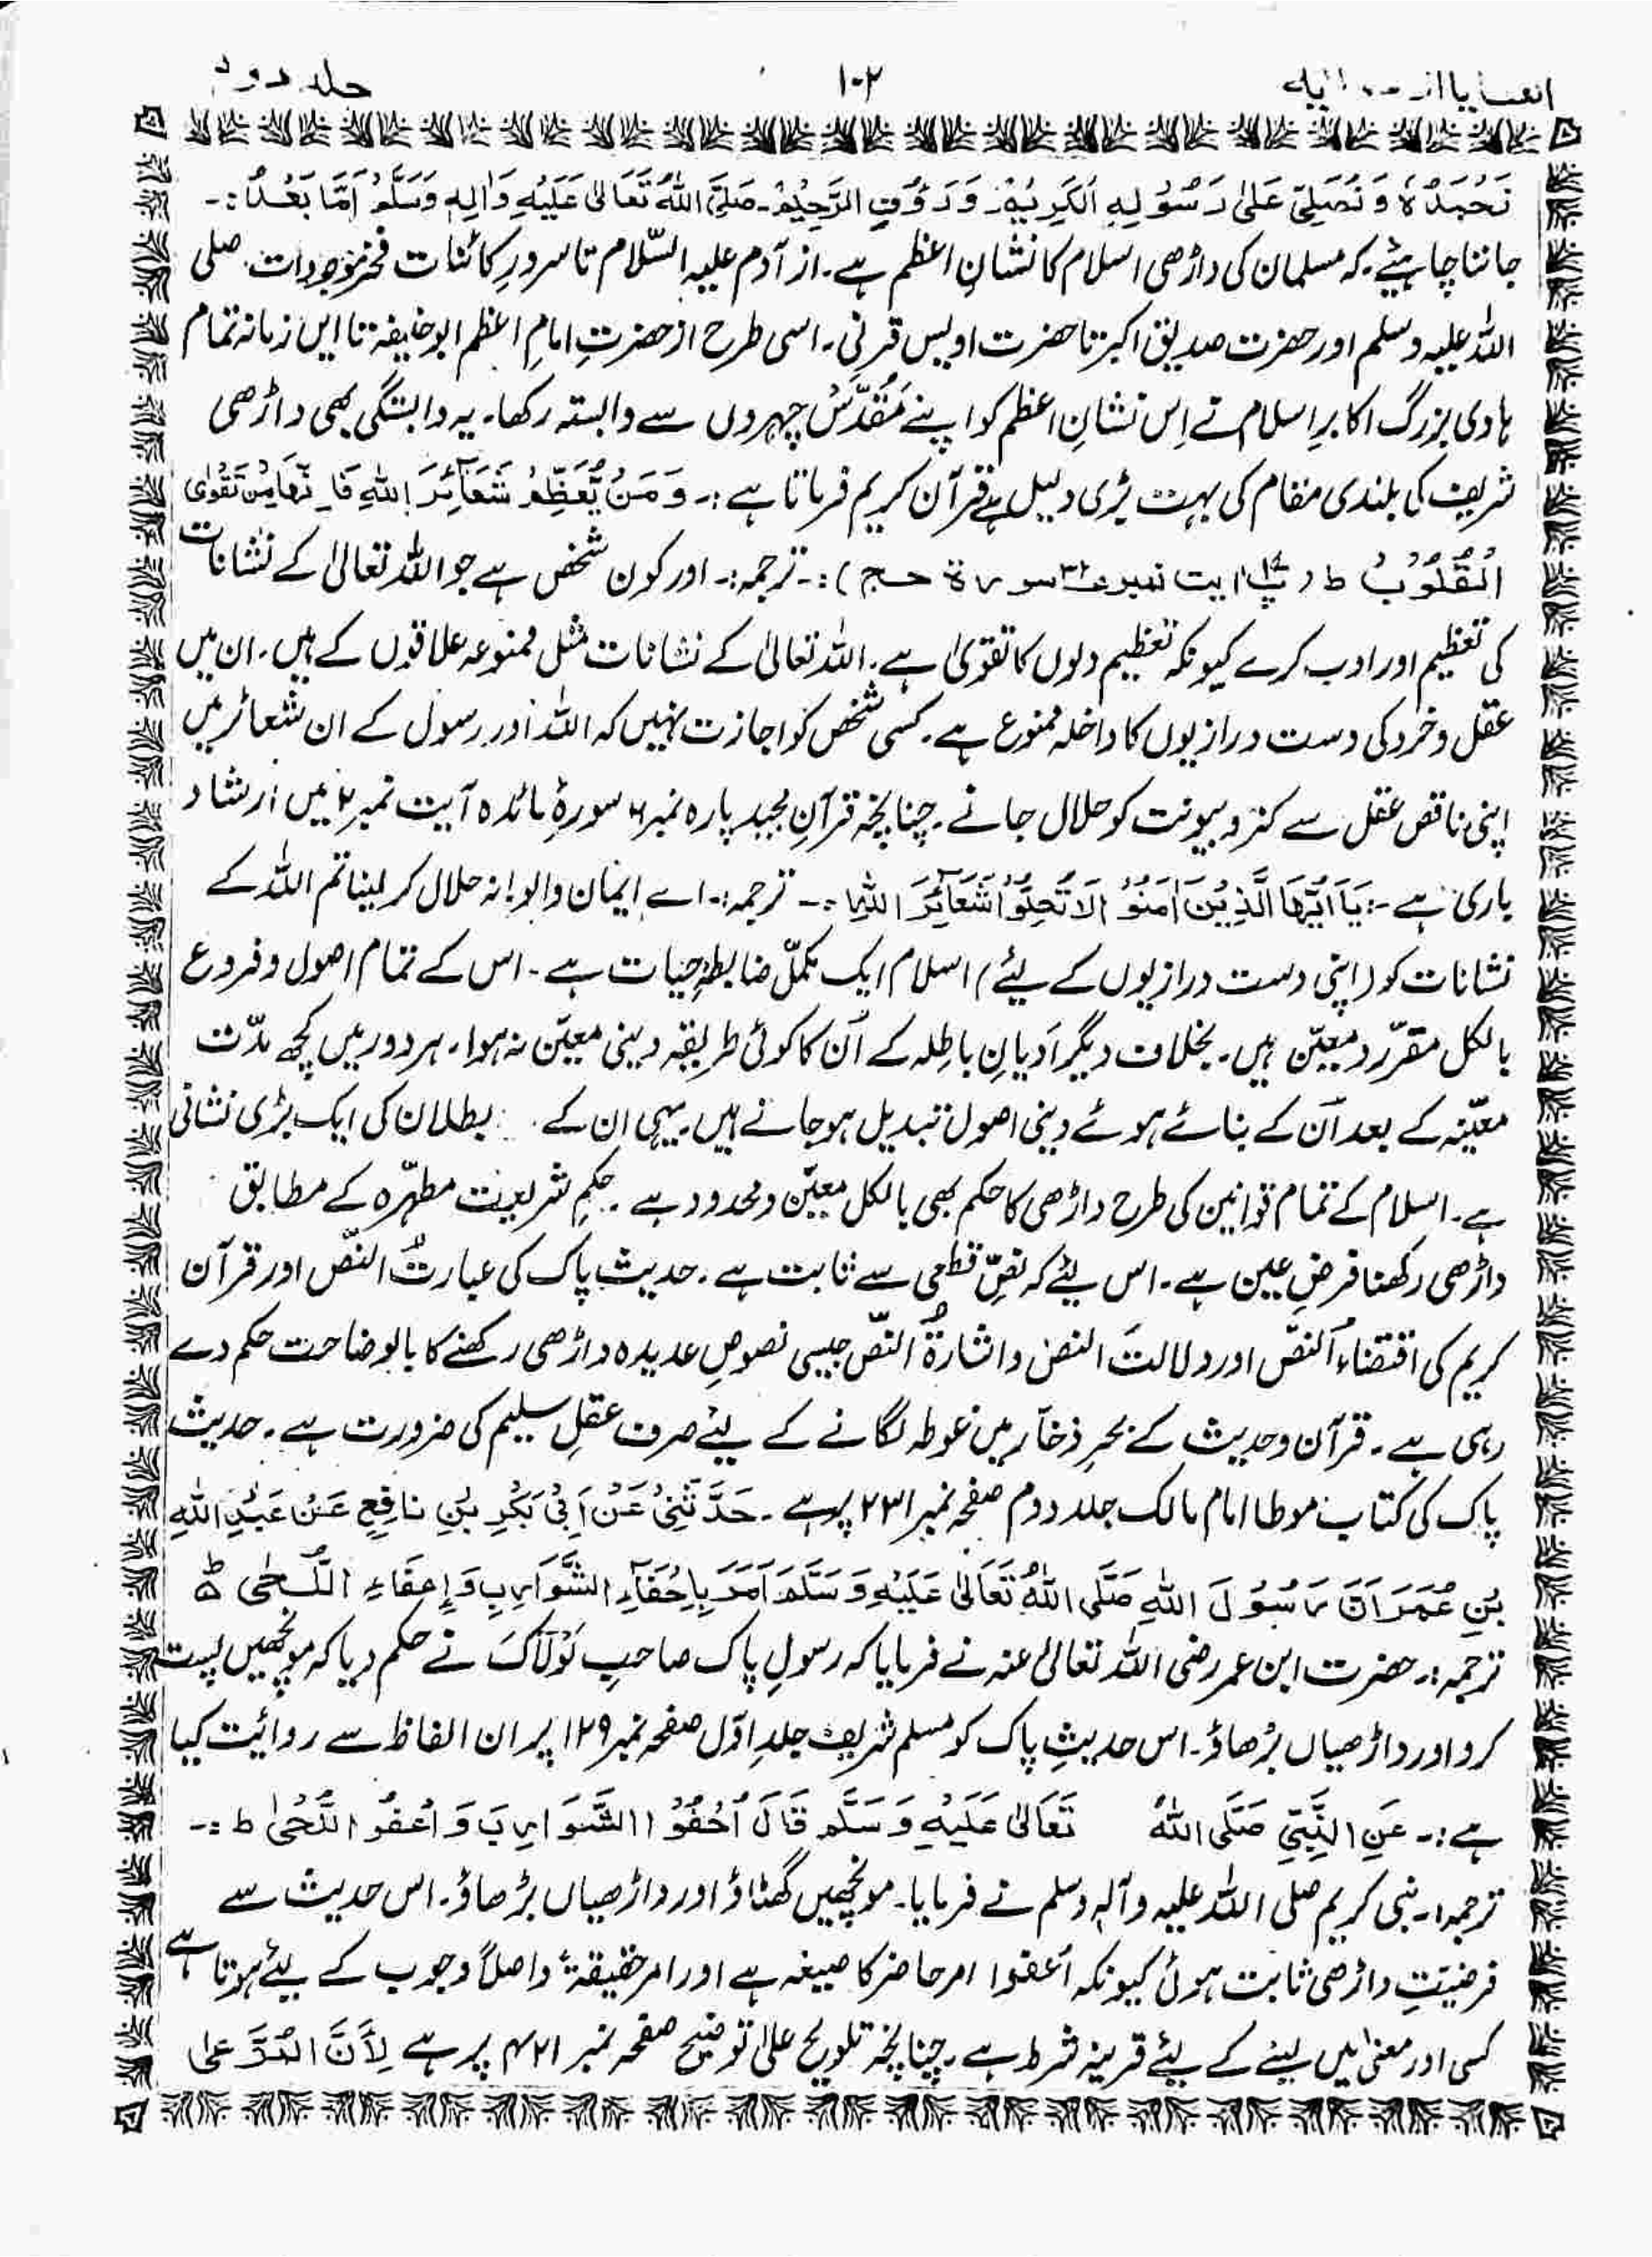 جلد دوم
۱۰۲
نَحْمَدُہٗ وَ نُصَلِّیْ عَلیٰ رَسُوْلِہِ الْکَرِیْمِ وَ رَؤُفِ الرَّحِیْمِ۔ صَلَّی اللہُ تَعَالیٰ عَلَیْہِ وَاٰلِہٖ وَسَلَّمْ اَمَّا بَعْدُ:۔
جاننا چاہیئے۔ کہ مسلمان کی داڑھی اسلام کا نشانِ اعظم ہے۔ از آدم علیہ السّلام تا سرورِ کائنات فخرِ موجودات صلی
اللہ علیہ وسلم اور حضرت صدیق اکبر تا حضرت اویس قرنی۔ اسی طرح از حضرتِ امامِ اعظم ابو حنیفہ تا ایں زمانہ تمام
ہادی بزرگ اکابرِ اسلام نے اِس نشانِ اعظم کو اپنے مُقدّس چہروں سے وابستہ رکھا۔ یہ وابستگی بھی داڑھی
شریف کی بلندی مقام کی بہت بڑی دلیل ہے قرآن کریم فرماتا ہے:۔ وَ مَنْ یُّعَظِّمْ شَعَآئِرَ اللہِ فَاِنَّھَا مِنْ تَقْوٰی
الْقُلُوْبُ ط (پ۱۷ آیت نمبر ۳۲ سورۃ حج):۔ ترجمہ:۔ اور کون شخص ہے جو اللہ تعالیٰ کے نشانات
کی تعظیم اور ادب کرے کیونکہ تعظیم دلوں کا تقویٰ ہے۔ اللہ تعالیٰ کے نشانات مثل ممنوعہ علاقوں کے ہیں۔ ان میں
عقل و خرد کی دست درازیوں کا داخلہ ممنوع ہے۔ کسی شخص کو اجازت نہیں کہ اللہ اور رسول کے ان شعائر میں
اپنی ناقص عقل سے کتر و بیونت کو حلال جانے۔ چنانچہ قرآنِ مجید پارہ نمبر ۶ سورۂ مائدہ آیت نمبر ۲ میں ارشاد
باری ہے:۔ یَآ اَیُّھَا الَّذِیْنَ اٰمَنُوْ الَا تُحِلُّوْا شَعَآئِرَ اللہِ:۔ ترجمہ:۔ اے ایمان والو! نہ حلال کر لینا تم اللہ کے
نشانات کو (اپنی دست درازیوں کے لیئے) اسلام ایک مکمّل ضابطۂ حیات ہے۔ اس کے تمام اصول و فروع
بالکل مقرّر و معیّن ہیں۔ بخلاف دیگر اَدیانِ باطِلہ کے اُن کا کوئی طریقہ دینی معیّن نہ ہوا۔ ہر دور میں کچھ مدّت
معیّنہ کے بعد اُن کے بنائے ہوئے دینی اصول تبدیل ہو جاتے ہیں۔ یہی ان کے بطلان کی ایک بڑی نشانی
ہے۔ اسلام کے تمام قوانین کی طرح داڑھی کا حکم بھی بالکل معیّن و محدود ہے۔ حکمِ شریعت مطہّرہ کے مطابق
داڑھی رکھنا فرضِ عین ہے۔ اس لیئے کہ نصِّ قطعی سے ثابت ہے۔ حدیث پاک کی عبارتُ النّص اور قرآن
کریم کی اقتضاءُ النّص اور دلالتُ النص و اشارۃُ النّص جیسی نصوصِ عدیدہ داڑھی رکھنے کا بالوضاحت حکم دے
رہی ہے۔ قرآن و حدیث کے بحرِ ذخّار میں غوطہ لگانے کے لیئے صرف عقلِ سلیم کی ضرورت ہے۔ حدیث
پاک کی کتاب موطا امام مالک جلد دوم صفحہ نمبر ۲۳۱ پر ہے۔ حَدَّثَنِیْ عَنْ اَبِیْ بَکْرِ بْنِ نَافِعٍ عَنْ عَبْدِ اللہِ
بْنِ عُمَرَ اَنَّ رَسُوْلَ اللہِ صَلَّی اللہُ تَعَالیٰ عَلَیْہِ وَ سَلَّمَ اَمَرَ بِاِحْفَآءِ الشَّوَارِبِ وَ اِعْفَاءِ اللُّحٰی ط
ترجمہ:۔ حضرت ابن عمر رضی اللہ تعالیٰ عنہ نے فرمایا کہ رسولِ پاک صاحبِ لَوْلَاکَ نے حکم دیا کہ مونچھیں پست
کرو اور داڑھیاں بڑھاؤ۔ اس حدیثِ پاک کو مسلم شریف جلدِ اوّل صفحہ نمبر ۱۲۹ پر ان الفاظ سے روائیت کیا
ہے:۔ عَنِ النَّبِیِّ صَلَّی اللہُ تَعَالیٰ عَلَیْہِ وَ سَلَّم قَالَ اُحْفُوْا الشَّوَارِبَ وَ اُعْفُو اللُّحٰی ط:۔
ترجمہ:۔ نبی کریم صلی اللہ علیہ وآلہٖ وسلم نے فرمایا۔ مونچھیں گھٹاؤ اور داڑھیاں بڑھاؤ۔ اس حدیث سے
فرضیّتِ داڑھی ثابت ہوئی کیونکہ اُعفوا امر حاضر کا صیغہ ہے اور امر حقیقۃً و اصلاً وجوب کے لیئے ہوتا ہے
کسی اور معنیٰ میں لینے کے لیئے قرینہ شرط ہے۔ چنانچہ تلویح علیٰ توضیح صفحہ نمبر ۴۲۱ پر ہے لِاَنَّ